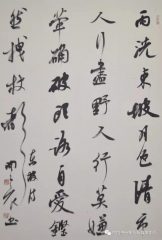 雨洗東坡月色清市
人行盡野人行莫嫌
犖确坡頭路自愛鏗
然曳杖聲
東坡詩